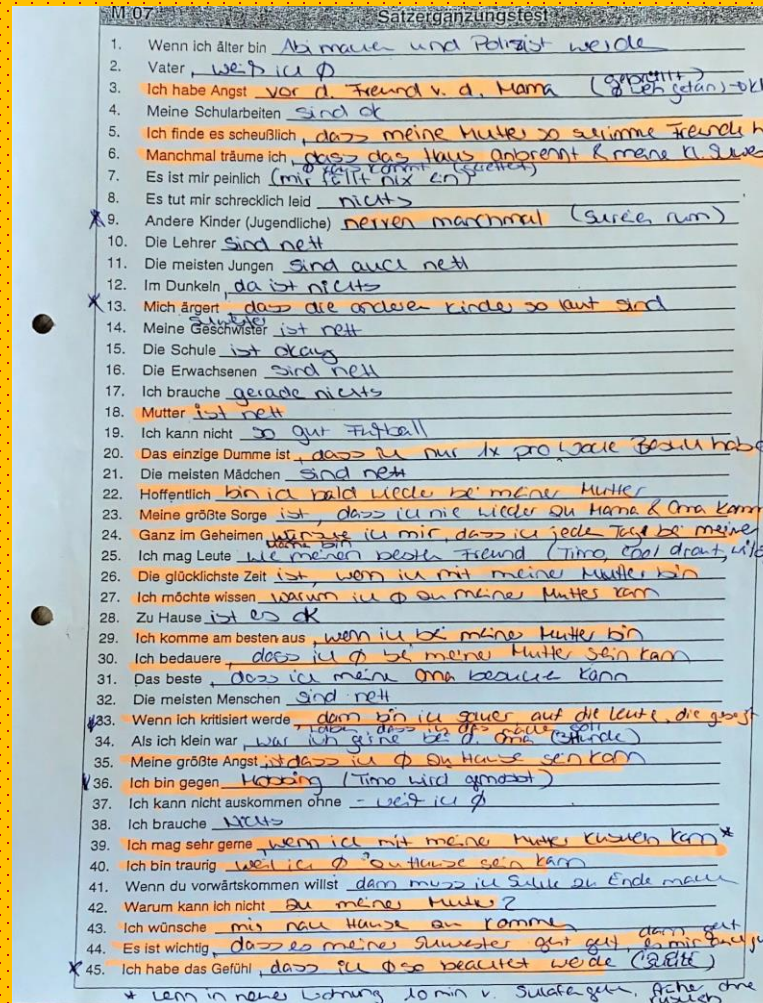 M 07 Satzergänzungstest
1. Wenn ich älter bin Abi machen und Polizist werde
2. Vater, weiß ich ∅
3. Ich habe Angst vor d. Freund v. d. Mama (geprügelt)
4. Meine Schularbeiten sind ok
5. Ich finde es scheußlich, dass meine Mutter so schlimme Freunde h
6. Manchmal träume ich, dass das Haus anbrennt & meine kl. Schwes
7. Es ist mir peinlich (mir fällt nix ein)
8. Es tut mir schrecklich leid nichts
* 9. Andere Kinder (Jugendliche) nerven manchmal (schreien rum)
10. Die Lehrer sind nett
11. Die meisten Jungen sind auch nett
12. Im Dunkeln, da ist nichts
* 13. Mich ärgert, dass die anderen Kinder so laut sind
Schwester
14. Meine Geschwister ist nett
15. Die Schule ist okay
16. Die Erwachsenen sind nett
17. Ich brauche gerade nichts
18. Mutter ist nett
19. Ich kann nicht so gut Fußball
20. Das einzige Dumme ist, dass ich nur 1x pro Woche Besuch habe
21. Die meisten Mädchen sind nett
22. Hoffentlich bin ich bald wieder bei meiner Mutter
23. Meine größte Sorge ist, dass ich nie wieder zu Mama & Oma kann
24. Ganz im Geheimen wünsche ich mir, dass ich jeden Tag bei meiner
25. Ich mag Leute wie meinen besten Freund (Timo, cool drauf,
26. Die glücklichste Zeit ist, wenn ich mit meiner Mutter bin
27. Ich möchte wissen warum ich ∅ zu meiner Mutter kann
28. Zu Hause ist es ok
29. Ich komme am besten aus, wenn ich bei meiner Mutter bin
30. Ich bedauere, dass ich ∅ bei meiner Mutter sein kann
31. Das beste, dass ich meine Oma besuchen kann
32. Die meisten Menschen sind nett
* 33. Wenn ich kritisiert werde, dann bin ich sauer auf die Leute, die gesagt
haben, dass ich das soll
34. Als ich klein war, war ich gerne bei d. Oma
35. Meine größte Angst ist dass ich ∅ zu Hause sein kann
* 36. Ich bin gegen Mobbing (Timo wird gemobbt)
37. Ich kann nicht auskommen ohne - weiß ich ∅
38. Ich brauche Nichts
39. Ich mag sehr gerne wenn ich mit meiner Mutter kuscheln kann *
40. Ich bin traurig weil ich ∅ zu Hause sein kann
41. Wenn du vorwärtskommen willst dann muss ich Schule zu Ende machen
42. Warum kann ich nicht zu meiner Mutter?
43. Ich wünsche mir nach Hause zu kommen
44. Es ist wichtig, dass es meiner Schwester gut geht, dann geht es mir auch gu
* 45. Ich habe das Gefühl, dass ich ∅ so beachtet werde
* wenn in neuer Wohnung 10 min v. Schlafengehen, ohne